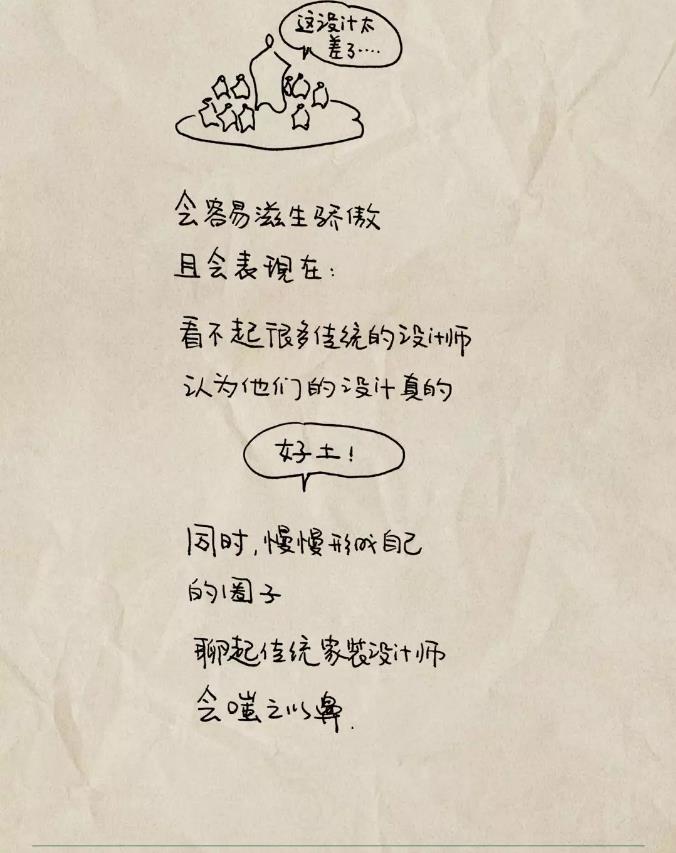 这设计太
差了....
会容易滋生骄傲
且会表现在:
看不起很多传统的设计师
认为他们的设计真的
好土!
同时,慢慢形成自己
的圈子
聊起传统家装设计师
会嗤之以鼻.